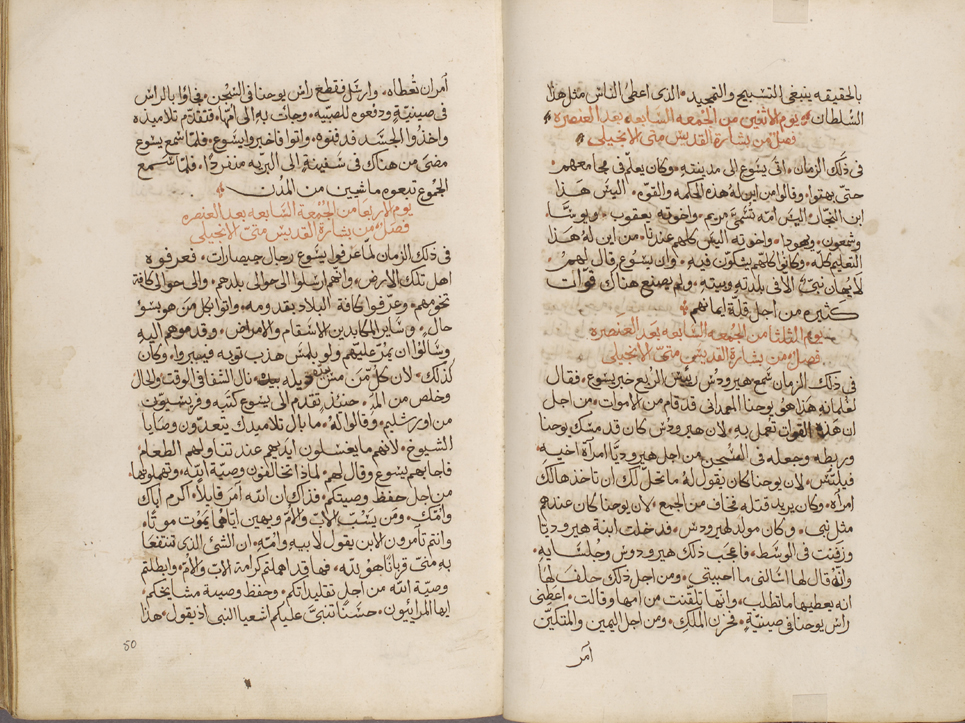 بالحقيقه ينبغي التسبيح والتمجيد. الذي اعطى الناس مثل هذا
السلطان يوم الاثنين من الجمعه السابعه بعد العنصره
فصل من بشارة القديس متى الانجيلي
في ذلك الزمان. اتى يسوع الى مدينته. وكان يعلم في مجامعهم
حتى بهتوا. وقالوا من اين له هذه الحكمه والقوه. اليس هذا
ابن النجار. اليس امه تسمى مريم. واخوته يعقوب. ويوسا.
وشمعون. ويهودا. واخوته اليس كلهم عندنا. من اين له هذا
التعليم كله. وكانوا كلهم يشكون فيه. وان يسوع قال لهم.
لا يهان نبي الا في بلدته وبيته. ولم يصنع هناك قوات
كثيره من اجل قلة ايمانهم.
يوم الثلثا من الجمعه السابعه بعد العنصره
فصل من بشارة القديس متى الانجيلي
في ذلك الزمان سمع هيرودس رئيس الربع خبر يسوع. فقال
لغلمانه هذا هو يوحنا المعمداني قد قام من الاموات. من اجل
ان هذه القوات تعمل به. لان هيرودس كان قد مسك يوحنا
وربطه وجعله في السجن من اجل هيروديا امرآة اخيه.
فيلبس. لان يوحنا كان يقول له ما تحل لك ان تاخذها لك
امراه. وكان يريد قتله فخاف من الجمع. لان يوحنا كان عندهم
مثل نبي. وكان مولد لهيرودس. فدخلت ابنة هيروديا
وزفنت في الوسط. فاعجب ذلك هيرودس وجلسايه.
وانه قال لها اسالني ما احببتي. ومن اجل ذلك حلف لها
انه يعطيها ما تطلب. وانها تلقنت من امها وقالت. اعطني
راس يوحنا في صينية. فحزن الملك. ومن اجل اليمين والمتكيين
امر
أمر ان تعطاه. وارسل فقطع راس يوحنا في السجن. فجاوا بالراس
في صينية ودفعوه للصبيه. وجات به الى امها. فتقدم تلاميذه
واخذوا الجسد فدفنوه. واتوا فاخبروا يسوع. فلما سمع يسوع
مضى من هناك في سفينة الى البريه منفردا. فلما سمع
الجموع تبعوه ماشيين من المدن.
يوم الاربعا من الجمعة السابعه بعد العنصره
فصل من بشارة القديس متى الانجيلي
في ذلك الزمان لما عرفوا يسوع رجال جيصارات. فعرفوه
اهل تلك الارض. وانهم ارسلوا الى حوالي بلدهم. والى حوالي كافة
تخومهم. وعرفوا كافة البلاد بقدومه. واتوا بكل من هو بسو
حال. وساير المكابدين الاسقام والامراض. وقدموهم اليه
وسالوا ان يمر عليهم ولو بلمس هدب ثوبه فيبروا. وكان
كذلك. لان كل من مس ذيله نال الشفا في الوقت والحال
وخلص من الداء. حينئذ تقدم الى يسوع كتبه وفريسيون
من اورشليم. وقالوا له. ما بال تلاميدك يتعدون وصايا
الشيوخ. لانهم ما يغسلون ايديهم عند تناولهم الطعام.
فاجابهم يسوع وقال لهم. لماذا تخالفون وصية الله. وتهملونها.
من اجل حفظ وصيتكم. فذاك ان الله امر قايلا. اكرم اباك
وامك. ومن يسب الاب والام ويهين اياهما يموت موتا.
وانتم تامرون الابن يقول لابيه وامه. ان الشئ الذي تنتفعا
به مني قربانا هو لله. فها قد اهملتم كرامة الاب والام. وابطلتم
وصية الله من اجل تقليداتكم. وحفظ وصية مشايخكم.
ايها المراييون. حسنا تنبى عليكم اشعيا النبي اذ يقول. هذا
50